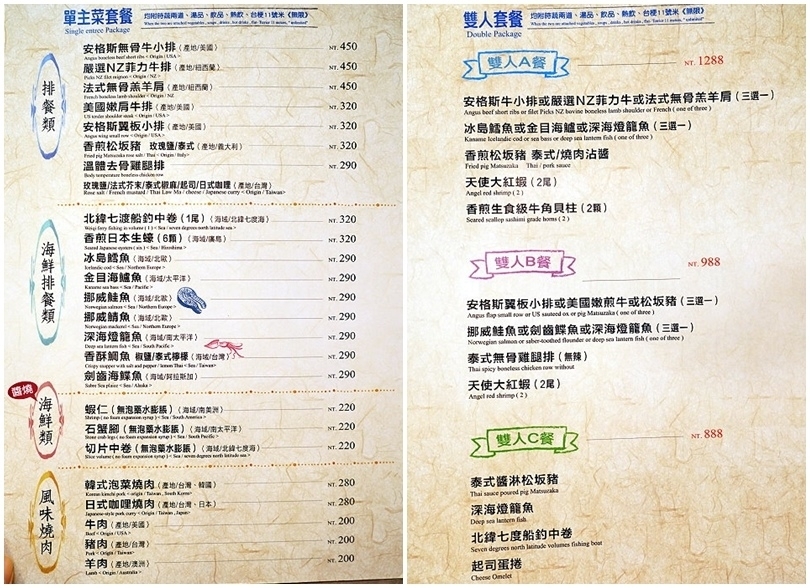 單主菜套餐 均附時蔬兩道、湯品、飲品、熱飲、台梗11號米《無限》
Single entrée Package
排餐類
安格斯無骨牛小排 (產地/美國) NT. 450
Angus boneless beef short ribs < Origin / USA >
嚴選NZ菲力牛排 (產地/紐西蘭) NT. 450
Picks NZ filet mignon < Origin / NZ >
法式無骨羔羊肩 (產地/紐西蘭) NT. 450
French boneless lamb shoulder < Origin / NZ >
美國嫩肩牛排 (產地/美國) NT. 320
US tender shoulder steak < Origin / USA >
安格斯翼板小排 (產地/美國) NT. 320
Angus wing small row < Origin / USA >
香煎松坂豬 玫瑰鹽/泰式 (產地/義大利) NT. 320
Fried pig Matsuzaka rose salt / Thai < Origin / Italy >
溫體去骨雞腿排 NT. 290
Body temperature boneless chicken row
玫瑰鹽/法式芥末/泰式椒麻/起司/日式咖哩 (產地/台灣)
Rose salt / French mustard / Thai Low Ma / cheese / Japanese curry < Origin / Taiwan >
海鮮排餐類
北緯七渡船釣中卷 (1尾) (海域/北緯七度海) NT. 320
香煎日本生蠔 (6顆) (海域/廣島) NT. 320
冰島鱈魚 (海域/北歐) NT. 290
Icelandic cod < Sea / Northern Europe >
金目海鱸魚 (海域/太平洋) NT. 290
Kaname sea bass < Sea / Pacific >
挪威鮭魚 (海域/北歐) NT. 290
Norwegian salmon < Sea / Northern Europe >
挪威鯖魚 (海域/北歐) NT. 290
Norwegian mackerel < Sea / Northern Europe >
深海燈籠魚 (海域/南太平洋) NT. 290
Deep sea lantern fish < Sea / South Pacific >
香酥鯛魚 椒鹽/泰式檸檬 (海域/台灣) NT. 290
Crispy snapper with salt and pepper / lemon Thai < Sea / Taiwan >
劍齒海鰈魚 (海域/阿拉斯加) NT. 290
Saber Sea plaice < Sea / Alaska >
醬燒
海鮮類
蝦仁 (無泡藥水膨脹) (海域/南美洲) NT. 220
Shrimp ( no foam expansion syrup ) < Sea / South America >
石蟹腳 (無泡藥水膨脹) (海域/南太平洋) NT. 220
Stone crab legs ( no foam expansion syrup ) < Sea / South Pacific >
切片中卷 (無泡藥水膨脹) (海域/北緯七度海) NT. 220
Slice volume ( no foam expansion syrup ) < Sea / seven degrees north latitude sea >
風味燒肉
韓式泡菜燒肉 (產地/台灣、韓國) NT. 280
Korean kimchi pork < origin / Taiwan , South Korea >
日式咖哩燒肉 (產地/台灣、日本) NT. 280
Japanese-style pork curry < Origin / Taiwan , Japan >
牛肉 (產地/美國) NT. 200
Beef < Origin / USA >
豬肉 (產地/台灣) NT. 200
Pork < Origin / Taiwan >
羊肉 (產地/澳洲) NT. 200
Lamb < Origin / Australia >
雙人套餐 均附時蔬兩道、湯品、飲品、熱飲、台梗11號米《無限》
Double Package
雙人A餐 NT. 1288
安格斯牛小排或嚴選NZ菲力牛或法式無骨羔羊肩 (三選一)
Angus beef short ribs or filet Picks NZ bovine boneless lamb shoulder or French ( one of three )
冰島鱈魚或金目海鱸或深海燈籠魚 (三選一)
Kaname Icelandic cod or sea bass or deep sea lantern fish ( one of three )
香煎松坂豬 泰式/燒肉沾醬
Fried pig Matsuzaka Thai / pork sauce
天使大紅蝦 (2尾)
Angel red shrimp ( 2 )
香煎生食級牛角貝柱 (2顆)
Seared scallop sashimi grade horns ( 2 )
雙人B餐 NT. 988
安格斯翼板小排或美國嫩煎牛或松坂豬 (三選一)
Angus flap small row or US sauteed ox or pig Matsuzaka ( one of three )
挪威鮭魚或劍齒鰈魚或深海燈籠魚 (三選一)
Norwegian salmon or saber-toothed flounder or deep sea lantern fish ( one of three )
泰式無骨雞腿排 (無辣)
Thai spicy boneless chicken row without
天使大紅蝦 (2尾)
Angel red shrimp ( 2 )
雙人C餐 NT. 888
泰式醬淋松坂豬
Thai sauce poured pig Matsuzaka
深海燈籠魚
Deep sea lantern fish
北緯七度船釣中卷
Seven degrees north latitude volumes fishing boat
起司蛋捲
Cheese Omelet